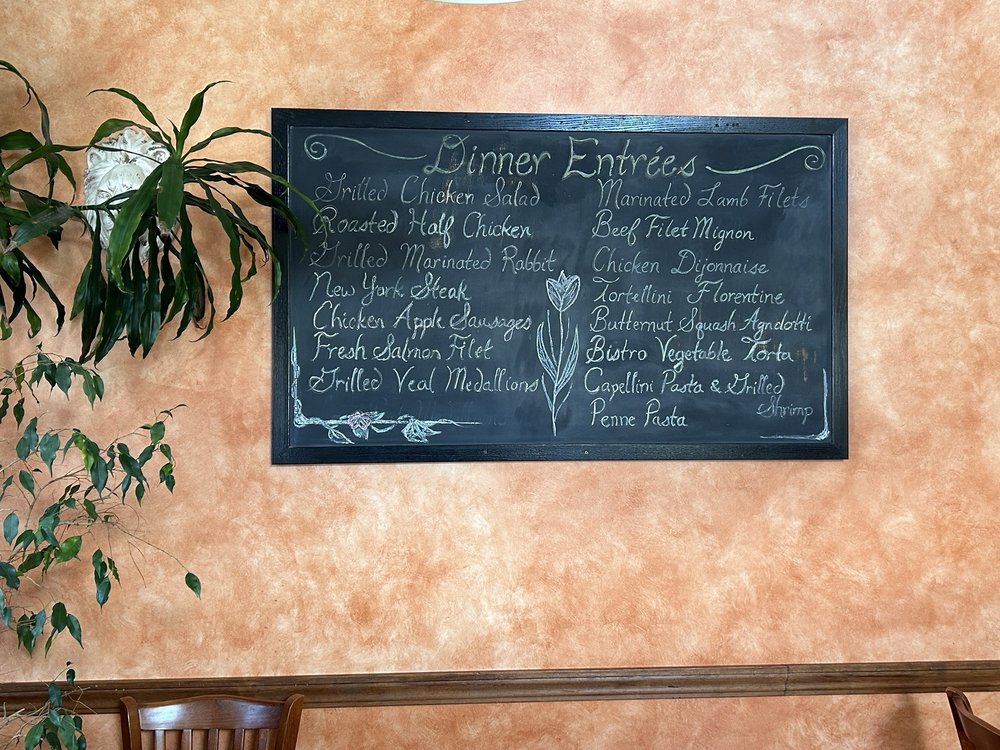 Dinner Entrées
Grilled Chicken Salad
Roasted Half Chicken
Grilled Marinated Rabbit
New York Steak
Chicken Apple Sausages
Fresh Salmon Filet
Grilled Veal Medallions
Marinated Lamb Filets
Beef Filet Mignon
Chicken Dijonnaise
Tortellini Florentine
Butternut Squash Agnolotti
Bistro Vegetable Torta
Capellini Pasta & Grilled
Shrimp
Penne Pasta